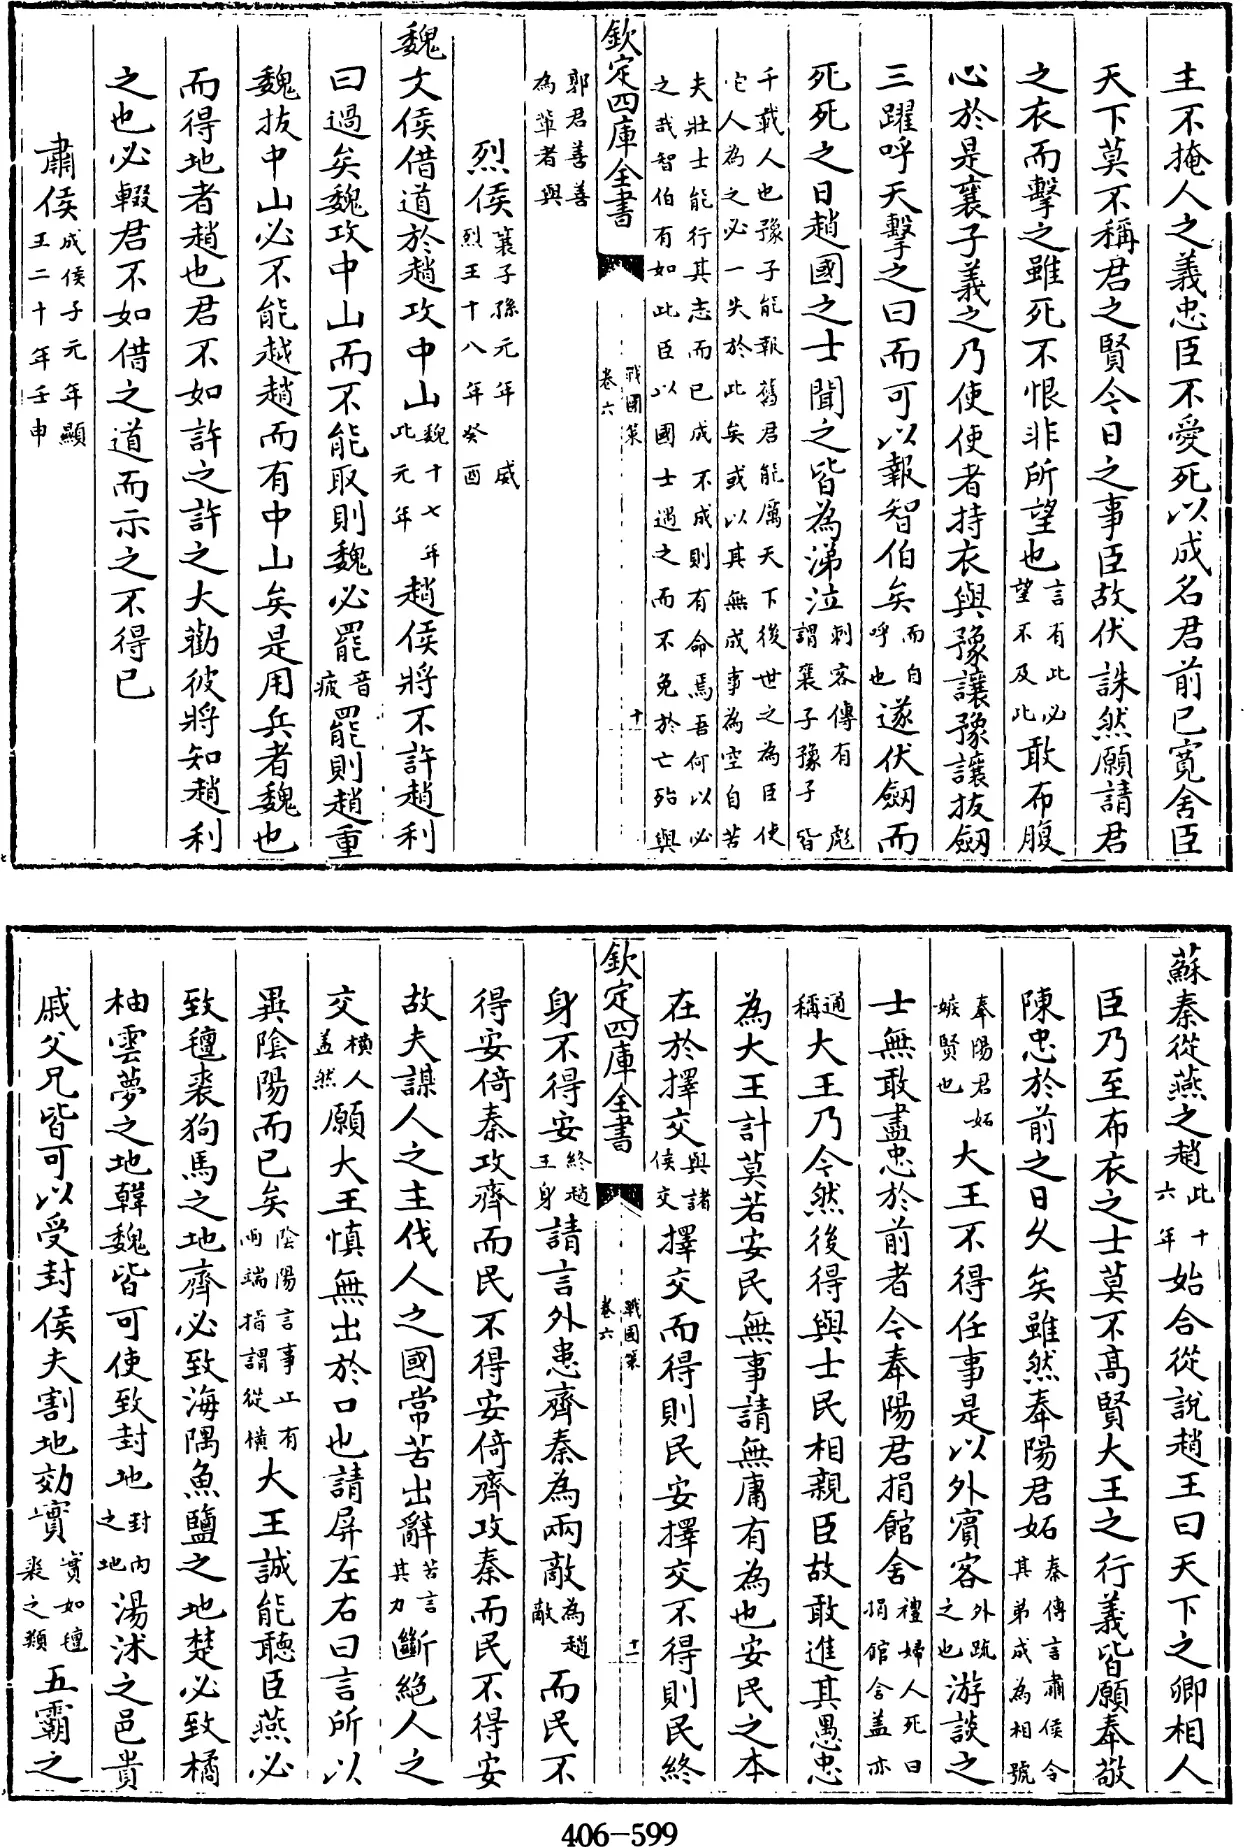 主不掩人之義忠臣不愛死以成名君前已寬舍臣
天下莫不稱君之賢今日之事臣故伏誅然願請君
之衣而擊之雖死不恨非所望也言有此必望不及此敢布腹
心於是襄子義之乃使使者持衣與豫讓豫讓拔劔
三躍呼天擊之曰而可以報智伯矣而自呼也遂伏劔而
死死之日趙國之士聞之皆為涕泣刺客傳有 彪謂襄子豫子皆
千載人也豫子能報舊君能厲天下後世之為臣使它人為之必一失於此矣或以其無成事為空自苦
夫壯士能行其志而已成不成則有命焉吾何以必之哉智伯有如此臣以國士遇之而不免於亡殆與
欽定四庫全書 戰國策 卷六 十
郭君善善為軰者與
烈侯襄子孫元年 威烈王十八年癸酉
魏文侯借道於趙攻中山魏十七年此元年趙侯將不許趙利
曰過矣魏攻中山而不能取則魏必罷音疲罷則趙重
魏拔中山必不能越趙而有中山矣是用兵者魏也
而得地者趙也君不如許之許之大勸彼將知趙利
之也必輟君不如借之道而示之不得已
肅侯成侯子元年顯王二十年壬申
蘇秦從燕之趙此十六年始合從說趙王曰天下之卿相人
臣乃至布衣之士莫不髙賢大王之行義皆願奉敬
陳忠於前之日乆矣雖然奉陽君妬秦傳言肅侯令其弟成為相號
奉陽君妬嫉賢也大王不得任事是以外賓客外疏之也游談之
士無敢盡忠於前者今奉陽君捐館舍禮婦人死曰捐館舍盖亦
通稱大王乃今然後得與士民相親臣故敢進其愚忠
為大王計莫若安民無事請無庸有為也安民之本
在於擇交與諸侯交擇交而得則民安擇交不得則民終
欽定四庫全書 戰國策 卷六 十一
身不得安終趙王身請言外患齊秦為兩敵為趙敵而民不
得安倚秦攻齊而民不得安倚齊攻秦而民不得安
故夫謀人之主伐人之國常苦出辭苦言其力斷絶人之
交橫人盖然願大王慎無出於口也請屏左右曰言所以
異陰陽而已矣陰陽言事止有兩端指謂從橫大王誠能聽臣燕必
致氊裘狗馬之地齊必致海隅魚鹽之地楚必致橘
柚雲夢之地韓魏皆可使致封地封內之地湯沐之邑貴
戚父兄皆可以受封侯夫割地効實實如氊裘之類五霸之
406-599